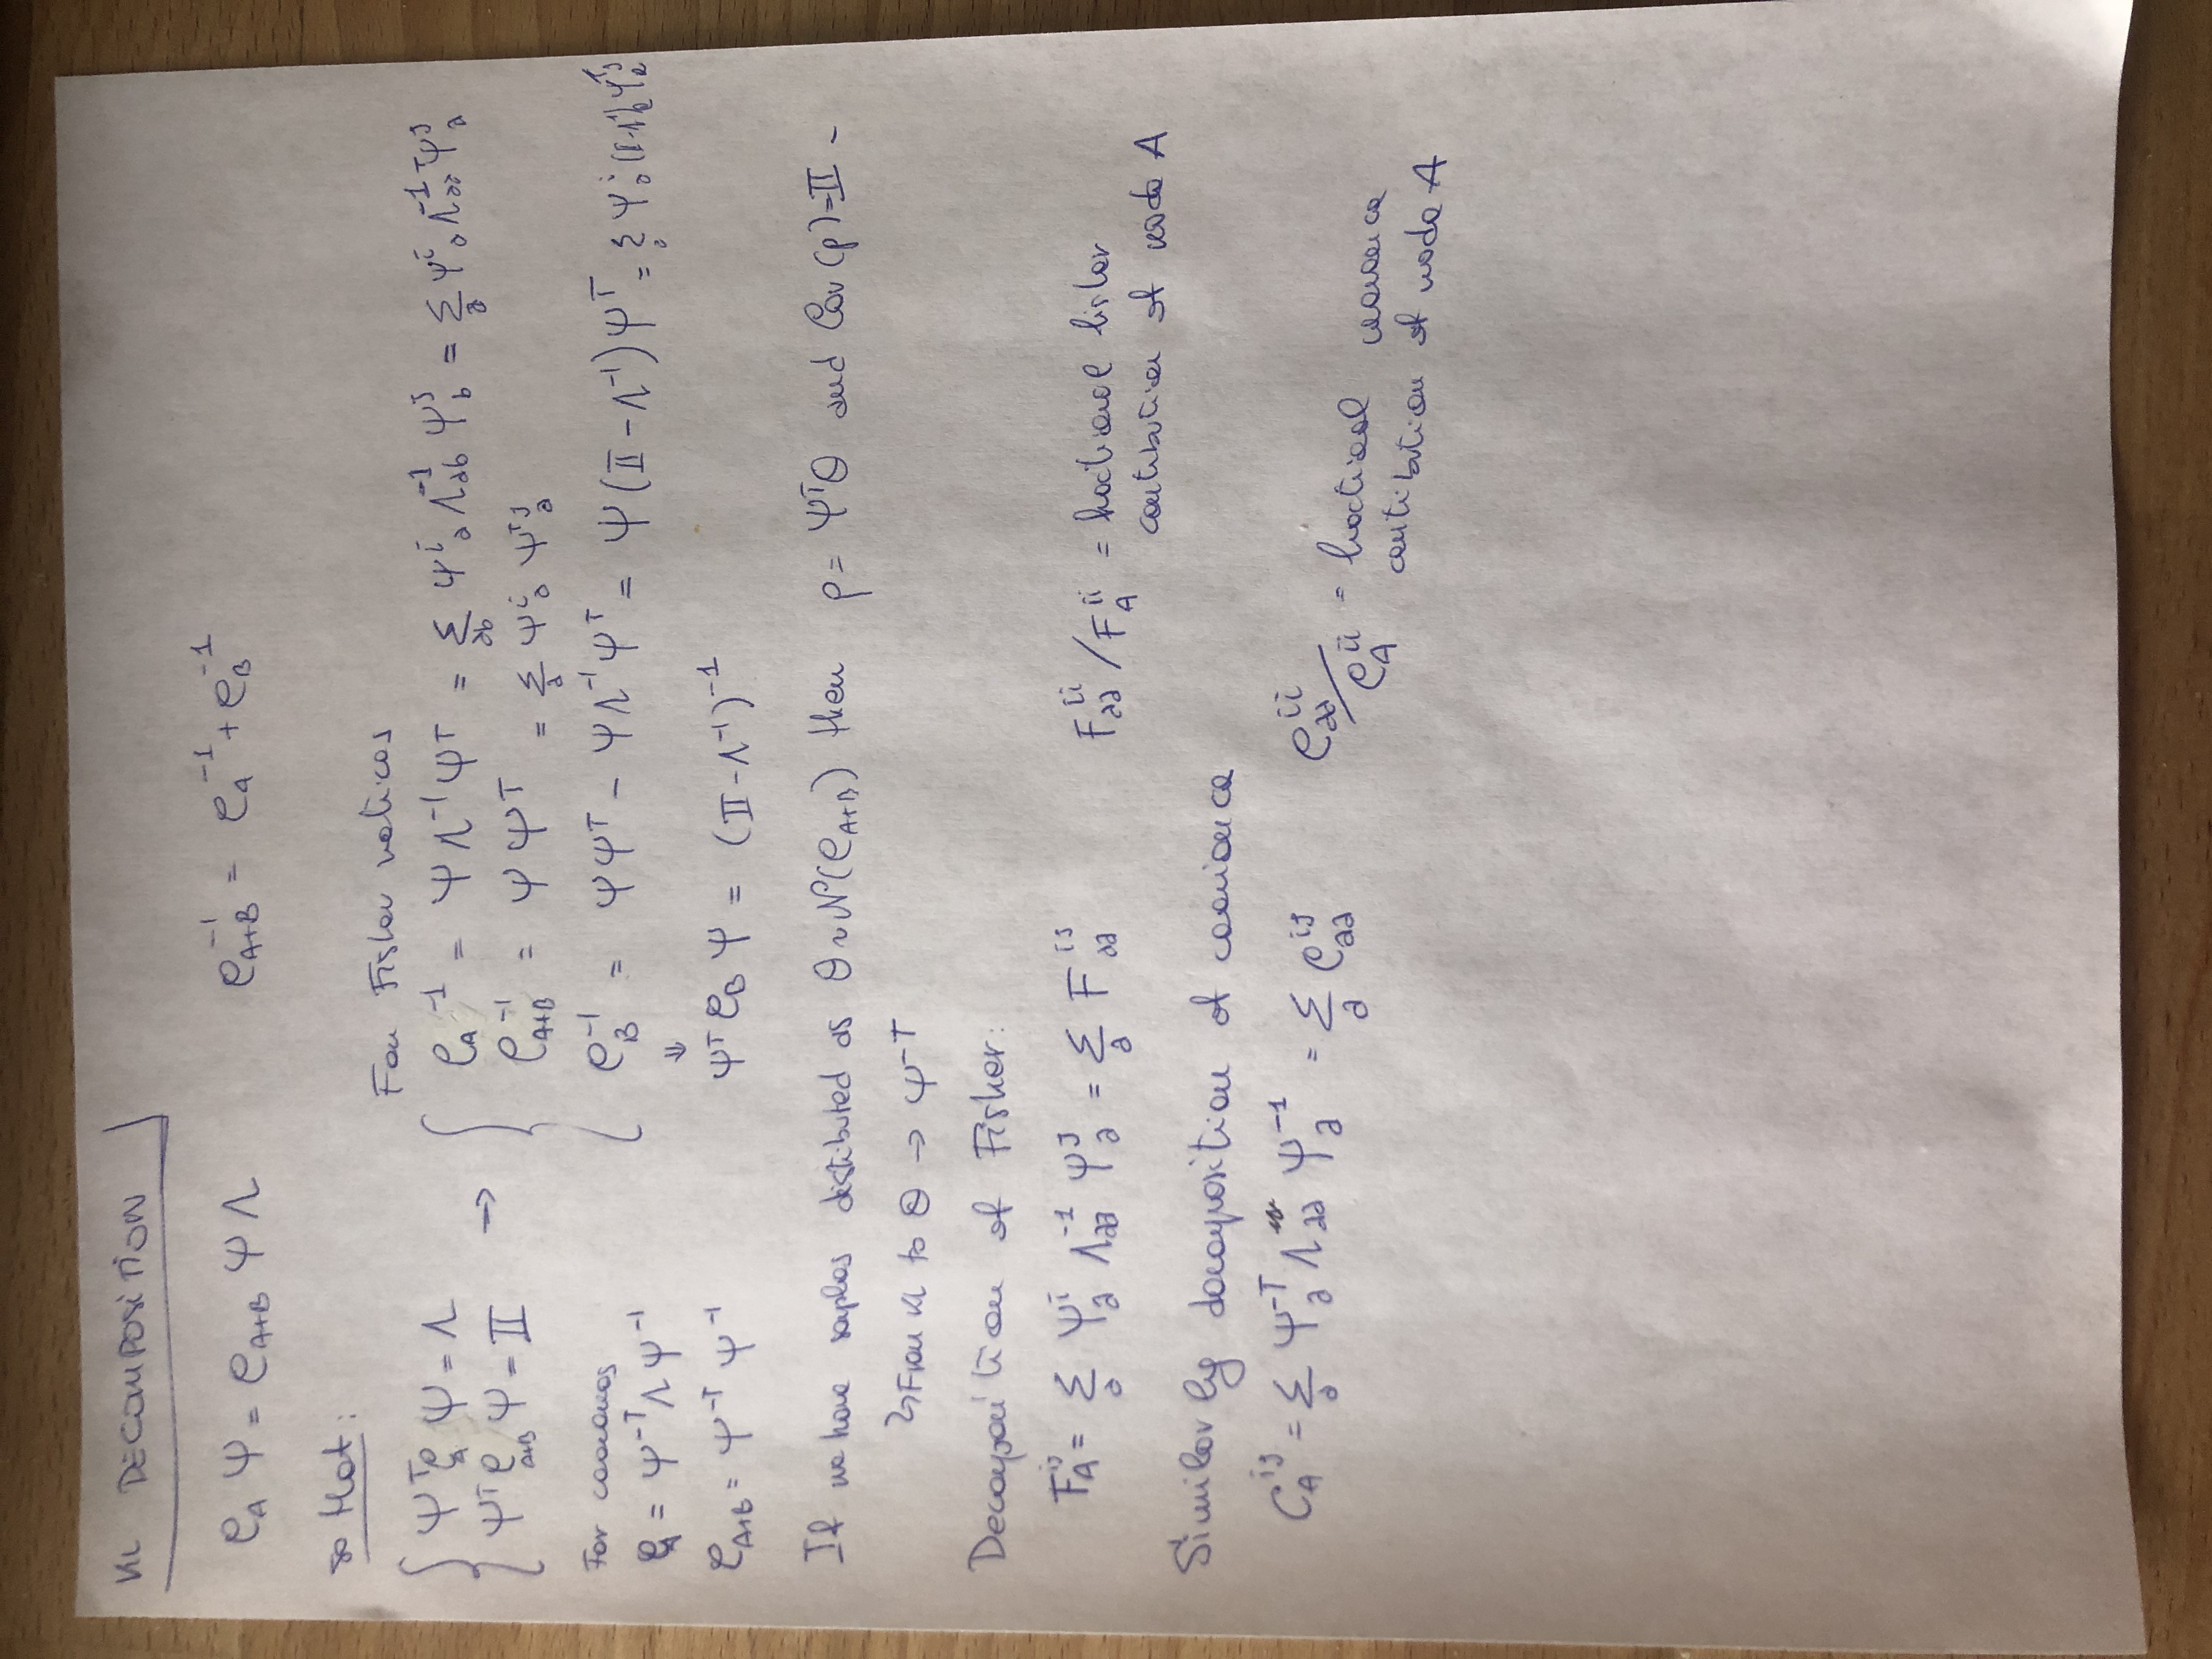 KL DECOMPOSITION
C_A Ψ = C_{A+B} Ψ Λ    C_{A+B}^{-1} = C_A^{-1} + C_B^{-1}
so that:
For Fisher matrices
Ψ^T C_A Ψ = Λ → C_A^{-1} = Ψ Λ^{-1} Ψ^T = Σ_{ab} Ψ^i_a Λ^{-1}_{ab} Ψ^j_b = Σ_a Ψ^i_a Λ^{-1}_{aa} Ψ^{Tj}_a
Ψ^T C_{A+B} Ψ = II    C_{A+B}^{-1} = Ψ Ψ^T = Σ_a Ψ^i_a Ψ^{Tj}_a
For covariances    C_B^{-1} = ΨΨ^T - ΨΛ^{-1}Ψ^T = Ψ(II - Λ^{-1})Ψ^T = Σ_a Ψ^i_a (II-Λ^{-1})_a Ψ^{Tj}_a
C_A = Ψ^{-T} Λ Ψ^{-1}    ⇓
C_{A+B} = Ψ^{-T} Ψ^{-1}    Ψ^T C_B Ψ = (II - Λ^{-1})^{-1}
If we have samples distributed as θ ~ N(C_{A+B}) then p = Ψ^T θ and Cov(p) = II -
↳ From KL to θ → Ψ^{-T}
Decomposition of Fisher:
F_A^{ij} = Σ_a Ψ^i_a Λ^{-1}_{aa} Ψ^j_a = Σ_a F^{ij}_{aa}    F^{ii}_{aa} / F^{ii}_A = fractional fisher
contribution of mode A
Similarly decomposition of covariance
C_A^{ij} = Σ_a Ψ^{-T}_a Λ_{aa} Ψ^{-1}_a = Σ_a C^{ij}_{aa}    C^{ii}_{aa} / C^{ii}_A = fractional covariance
contribution of mode A